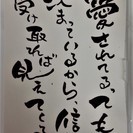 愛されてるって
決まっているから、信
受け取れば見えてく